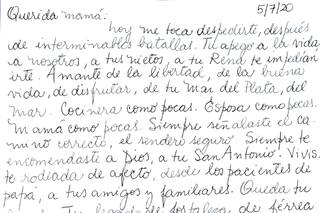 5/7/20
Querida mamá:
hoy me toca despedirte, después
de interminables batallas. Tu apego a la vida,
a nosotros, a tus nietos, a tu René te impedían
irte. Amante de la libertad, de la buena
vida, de disfrutar, de tu Mar del Plata, del
mar. Cocinera como pocas. Esposa como pocas.
Mamá como pocas. Siempre señalaste el ca-
mino correcto, el sendero seguro. Siempre te
encomendaste a Dios, a tu San Antonio. Vivis-
te rodeada de afecto, desde los pacientes de
papá, a tus amigos y familiares. Queda tu
de férrea